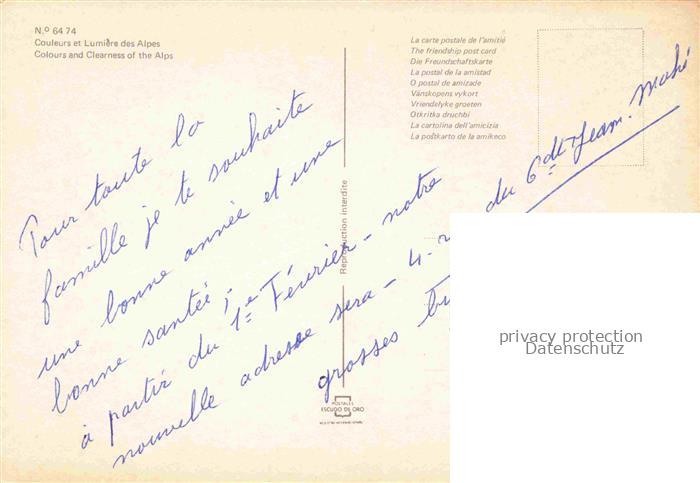 N.º 64 74
Couleurs et Lumière des Alpes
Colours and Clearness of the Alps
La carte postale de l'amitié
The friendship post card
Die Freundschaftskarte
La postal de la amistad
O postal de amizade
Vänskopens vykort
Vriendelyke groeten
Otkritka druchbi
La cartolina dell'amicizia
La poŝtkarto de la amikeco
Reproduction interdite
Pour toute la
famille je te souhaite
une bonne année et une
bonne santée ;
à partir du 1er Février - notre
nouvelle adresse sera - 4. du 6dt Jean.
grosses
POSTALES
ESCUDO DE ORO
privacy protection
Datenschutz